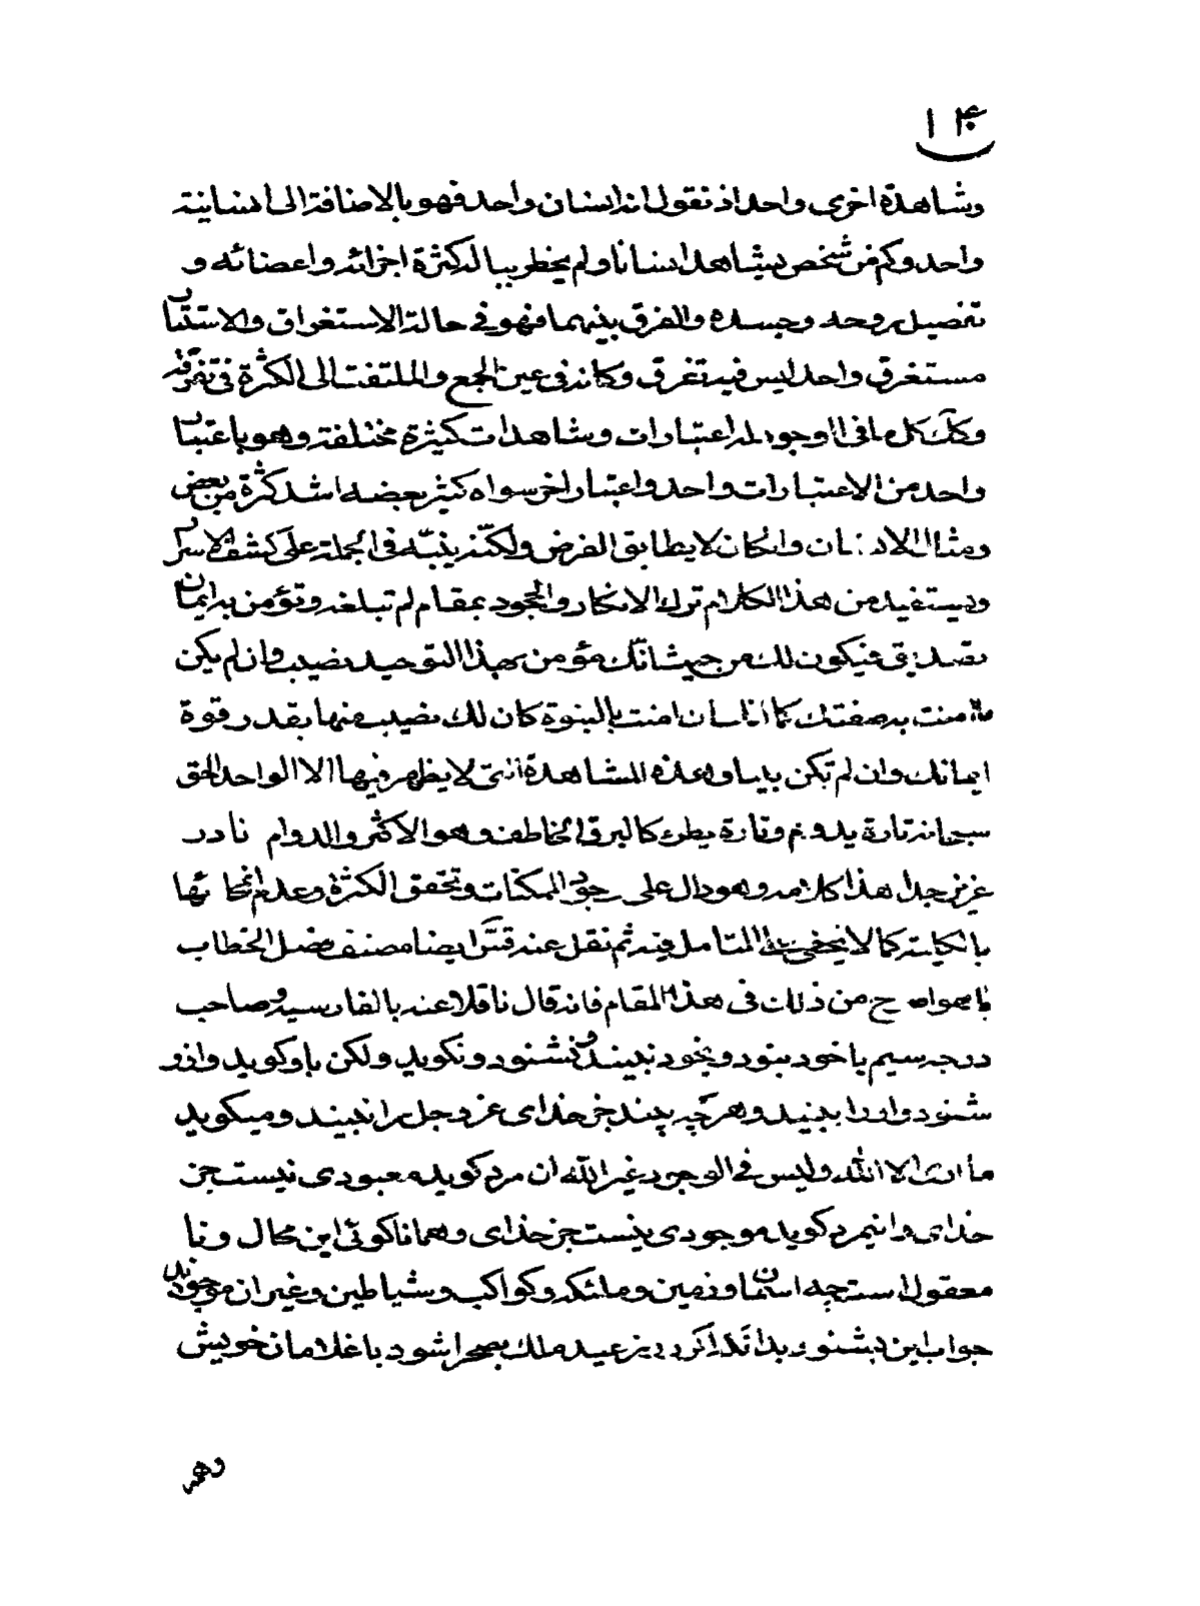 ١٤
ومشاهدة اخرى واحد اذ نقول انه انسان واحد فهو بالاضافة الى الانسانية
واحد وكم من شخص يشاهد انسانا ولم يخطر بباله كثرة اجزائه واعضائه و
تفصيل روحه وجسده والفرق بينهما فهو في حالة الاستغراق والاستتار
مستغرق واحد ليس فيه تفرق وكانه في عين الجمع والملتفت الى الكثرة في تفرقة
وكك كل ما في الوجود له اعتبارات ومشاهدات كثيرة مختلفة وهو باعتبار
واحد من الاعتبارات واحد واعتبار اخر سواه كثير بعضه اشد كثرة من بعض
ومثال الانسان وان كان لا يطابق الغرض ولكنه ينبه في الجملة على كشف الاسرار
ويستفيد من هذا الكلام ترك الانكار والجحود بمقام لم تبلغه وتؤمن به ايمان
تصديق فيكون لك من حيث انك مؤمن بهذا التوحيد نصيب وان لم يكن
ما امنت به صفتك كما انك ان امنت بالنبوة كان لك نصيب منها بقدر قوة
ايمانك وان لم تكن نبيا وهذه المشاهدة التي لا يظهر فيها الا الواحد الحق
سبحانه تارة يدوم وتارة يطرء كالبرق الخاطف وهو الاكثر والدوام نادر
عزيز جدا هذا كلامه وهو دال على وجود الممكنات وتحقق الكثرة وعدم انمحائها
بالكلية كما لا يخفى على المتامل فيه ثم نقل عنه قدس سره ايضا مصنف فصل الخطاب
ما هو اصرح من ذلك في هذا المقام فانه قال ناقلا عنه بالفارسية وصاحب
درجه سيم با خود نبود و بخود نبيند و نشنود و نكويد ولكن باو كويد و ازو
شنود و او را بيند و هر چه بيند جز خداى عز و جل را نبيند و ميكويد
ما ارى الا الله وليس في الوجود غير الله ان مرد كويد معبودى نيست جز
خداى و اينمرد كويد موجودى نيست جز خداى و همانا كوئى اين محال و نا
معقول است چه اسمان و زمين و ملئكه و كواكب و شياطين و غير ان موجودند
جواب اين بشنو بدانكه اكر روز عيد ملك بصحرا شود با غلامان خويش
وهر